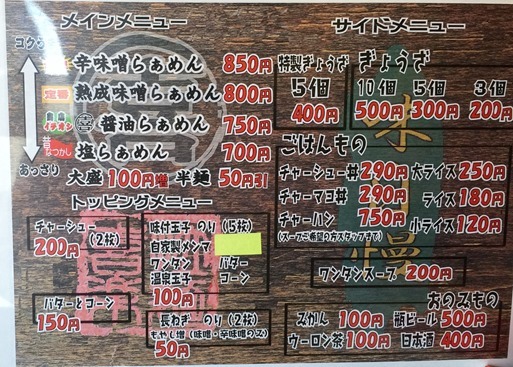 メインメニュー
コク
辛味噌らぁめん 850円
定番 熟成味噌らぁめん 800円
イチオシ 醤油らぁめん 750円
昔なつかし 塩らぁめん 700円
あっさり
大盛 100円増 半麺 50円引
トッピングメニュー
チャーシュー(2枚)
200円
バターとコーン
150円
味付玉子 のり(5枚)
自家製メンマ
ワンタン バター
温泉玉子 コーン
100円
長ねぎ のり(2枚)
もやし増(味噌・辛味噌のみ)
50円
サイドメニュー
特製ぎょうざ ぎょうざ
5個 10個 5個 3個
400円 500円 300円 200円
ごはんもの
チャーシュー丼 290円 大ライス 250円
チャーマヨ丼 290円 ライス 180円
チャーハン 750円 小ライス 120円
(スープご希望の方スタッフまで)
ワンタンスープ 200円
おのみもの
みかん 100円 瓶ビール 500円
ウーロン茶 100円 日本酒 400円